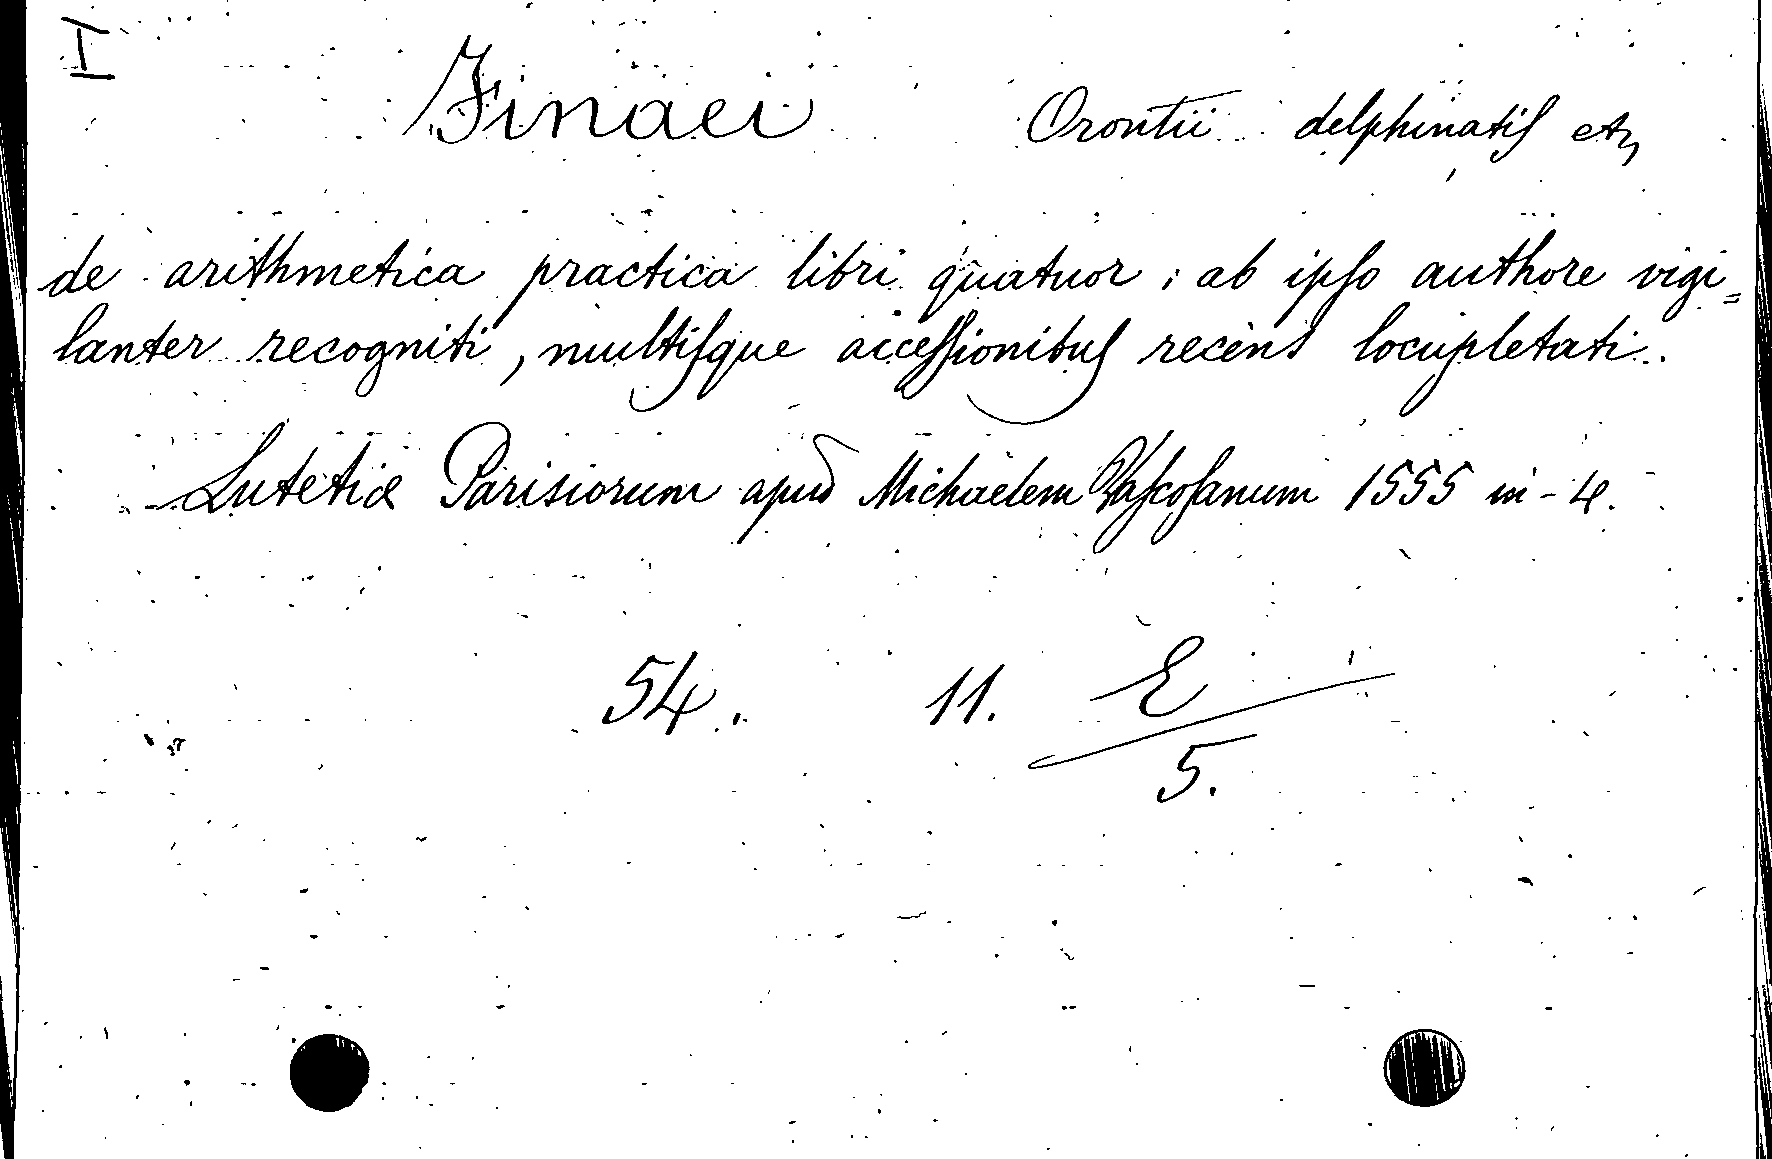 I
Finaei Orontii delphinatis etc
de arithmetica practica libri quatuor: ab ipso authore vigi=
lanter recogniti, multisque accessionibus recèns locupletati.
Lutetiæ Parisiorum apud Michaelem Vascosanum 1555 in-4.
54. 11. E
5.